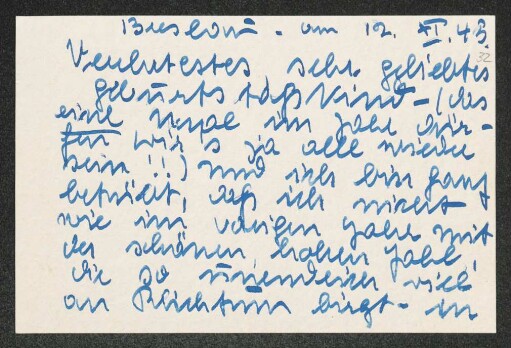 Breslau - am 12. XI. 43.
32
Verehrtestes sehr geliebtes
Geburtstagskind - (das
eine Mal im Jahr dür-
fen wir's ja alle wieder
sein!!) und ich bin ganz
betrübt, daß ich nicht
wie im vorigen Jahr mit
der schönen hohen Zahl,
die so unendlich viel
an Reichtum birgt - in